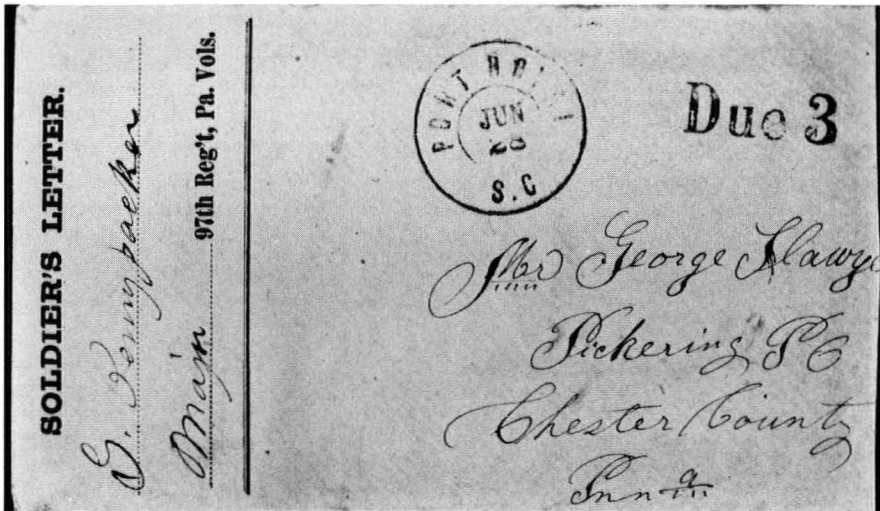 SOLDIER'S LETTER.
G. Pennypacker
Major 97th Reg't, Pa. Vols.
PORT ROYAL
JUN
28
S.C
Due 3
Mr George
Pickering P O
Chester County
Penna